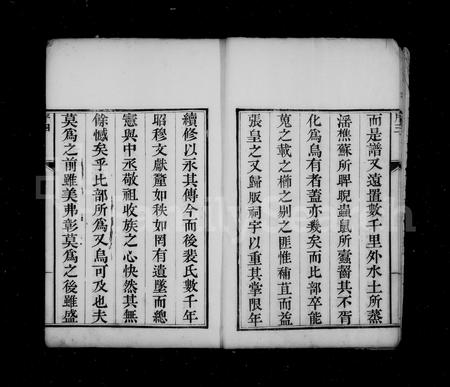 而是譜又遠置數千里外水土所蒸
淫樵蘇所睥睨蟲鼠所蠹齧其不胥
化為烏有者蓋亦幾矣而比部卒能
蒐之載之櫛之剔之匪惟補苴而益
張皇之又歸版祠宇以重其掌限年
續修以永其傳今而後裴氏數千年
昭穆文獻釐如秩如罔有遺墜而總
憲與中丞敬祖收族之心快然其無
餘憾矣乎比部所為又烏可及也夫
莫為之前雖美弗彰莫為之後雖盛